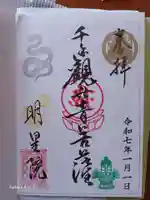 奉拝
令和七年一月一日
千手観世音菩薩
明星院